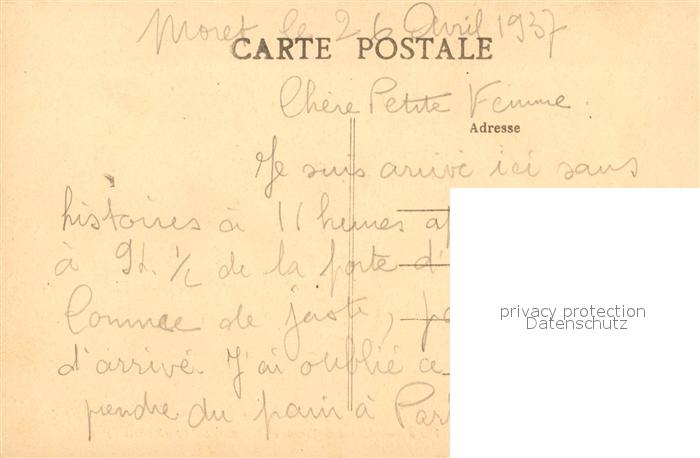 Moret le 26 Avril 1937
CARTE POSTALE
Chère Petite Femme.
Adresse
Je suis arrivé ici sans
histoires à 11 heures
à 9h. 1/2 de la porte d'
Comme de juste,
d'arrivé. J'ai oublié
prendre du pain à
privacy protection
Datenschutz